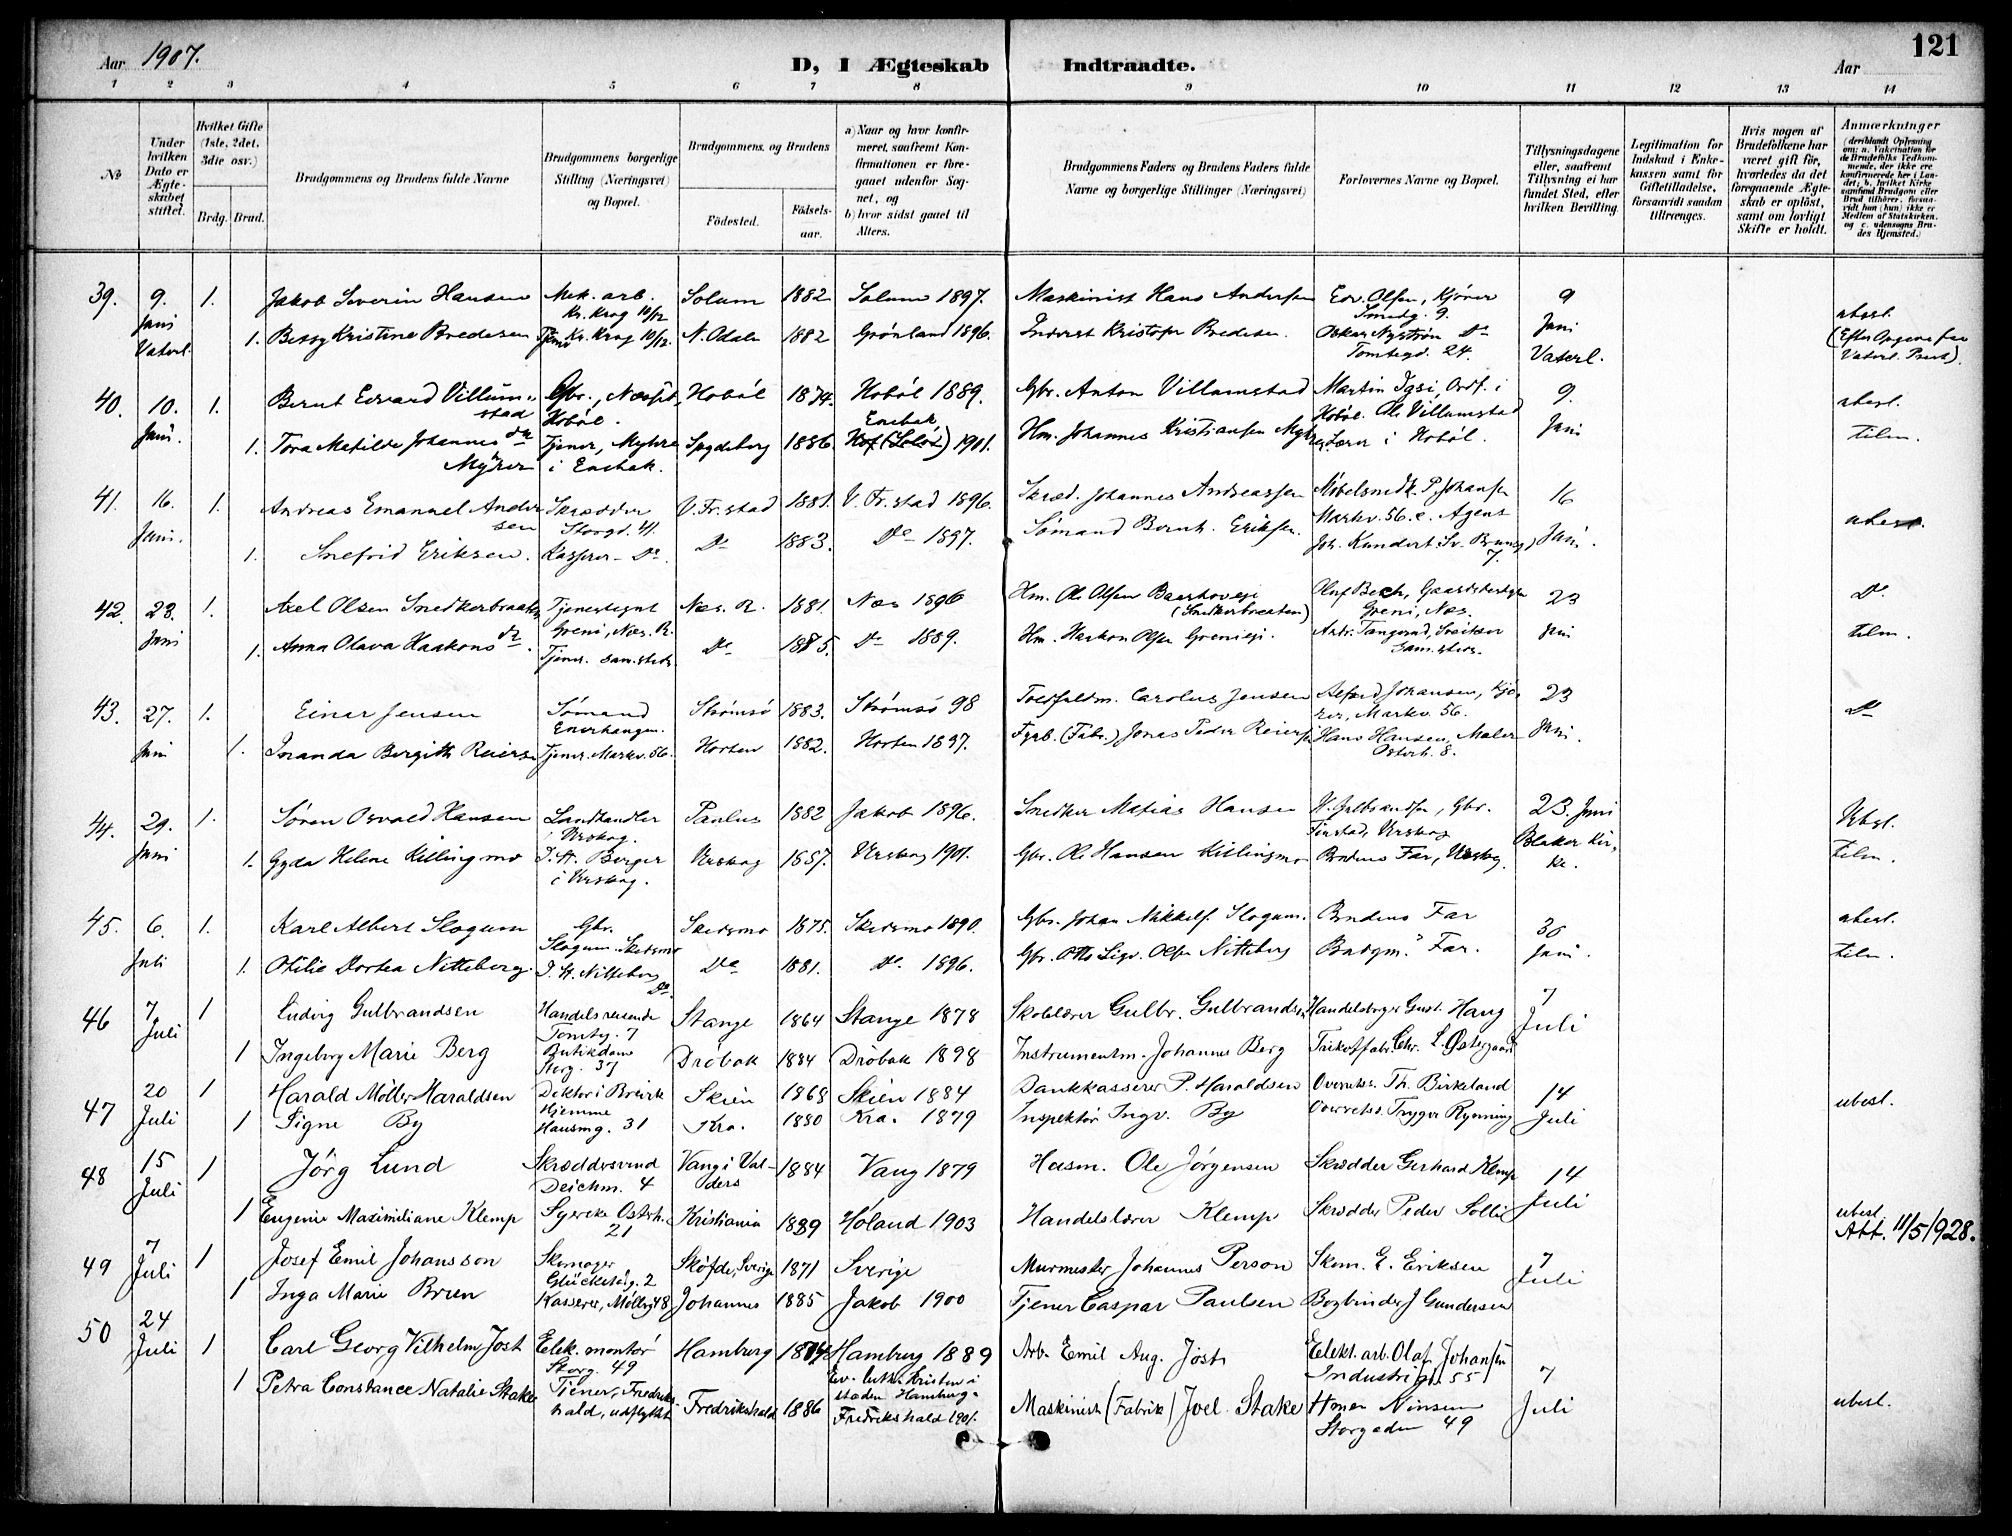 Aar 1907.
D, I Ægteskab Indtraadte.
121
Aar
1 2 3 4 5 6 7 8 9 10 11 12 13 14
No
Under hvilken Dato er Ægteskabet stiftet.
Hvilket Gifte (1ste, 2det, 3die osv.)
Brdg. Brud.
Brudgommens og Brudens fulde Navne
Brudgommens borgerlige Stilling (Næringsvei) og Bopæl.
Brudgommens og Brudens
Födested.
Födselsaar.
a) Naar og hvor konfirmeret, saafremt Konfirmationen er foregaaet udenfor Sognet, og
b) hvor sidst gaaet til Alters.
Brudgommens Faders og Brudens Faders fulde Navne og borgerlige Stillinger (Næringsvei)
Forlovernes Navne og Bopæl.
Tillysningsdagene eller, saafremt Tillysning ei har fundet Sted, efter hvilken Bevilling.
Legitimation for Indskud i Enkekassen samt for Giftetilladelse, forsaavidt saadan tiltrænges.
Hvis nogen af Brudefolkene har været gift för, hvorledes da det foregaaende Ægteskab er oplöst, samt om lovligt Skifte er holdt.
Anmærkninger (deriblandt Oplysning om: a. Vakcination for de Brudefolks Vedkommende, der ikke ere konfirmerede her i Landet; b. hvilket Kirkesamfund Brudgom eller Brud tilhörer, forsaavidt han (hun) ikke er Medlem af Statskirken, og c. udensogns Brudes Hjemsted.)
39. 9. 1. Jakob Severin Hansen Mek. arb. Kr. Krog 10/12 Solum 1882 Solum 1897. Maskinist Hans Andersen Edv. Olsen, Kjörer Smedg. 9. 9 ubesl.
Juni Vaterl. 1. Bessy Kristine Bredesen Tjen. Kr. Krog 10/12. N. Odalen 1882 Grönland 1896. Inderst Kristofer Bredesen. Oskar Nyström Do Tomtegd. 24. Juni Vaterl. (Efter Opgave fra Vaterl. Præst).
40. 10. 1. Bernt Edvard Villumstad Gbr., Hoböl. Hoböl 1874. Hoböl 1889. Gbr. Anton Villumstad Martin Igsi, Ordf. i Hoböl. Ole Villumstad 9. ubesl.
Juni. 1. Tora Matilde Johannesdr Myhrer Tjener, Myhrer i Enebak. Spydeberg 1886. Enebak 1901. Hm. Johannes Kristiansen Myhrer Lærer i Hoböl. Juni tilm.
41. 16. 1. Andreas Emanuel Andersen Skrædder Storgd. 41. V. Fr.stad 1881. V. Fr.stad 1896. Skræd. Johannes Andreassen Möbelsnedk. P. Johansen Markv. 56. c. Agent 16 ubesl.
Juni. 1. Snefrid Eriksen. Kasserer Do. Do 1883. Do 1897. Sömand Bernh. Eriksen. Joh. Kundert Juni.
42. 23. 1. Axel Olsen Snedkerbraaten Tjenestegut Greni, Næs. R. Næs. R. 1881. Næs 1896 Hm. Ole Olsen (Snedkerbraaten) Oluf Bech, Gaardsbestyrer Greni, Næs. 23 Do.
Juni 1. Anna Olava Haakonsdr. Tjener. sam. steds Do 1885. Do 1889. Hm. Haakon Olsen Grenieje. Antr. Tangerud, Sveitser Sam. steds. Juni tilm.
43. 27. 1. Einar Jensen Sömand Enerhaugen. Strömsö 1883. Strömsö 98 Toldfuldm. Carolus Jensen Alfred Johansen, Kjörer, Markv. 56. 23 Do
Juni 1. Inanda Bergith Reiersen Tjener. Markv. 56. Horten 1882. Horten 1897. Fyrb. (Fabr.) Jonas Peder Reiersen Hans Hansen, Maler Osterh. 8. Juni.
44. 29. 1. Sören Osvald Hansen Landhandler i Urskog. Paulus 1882 Jakob 1896. Snedker Matias Hansen Gbr. Urskog 23. Juni Ubesl.
Juni 1. Gyda Helene Killingmo I. H. Berger i Urskog. Urskog 1887. Urskog 1901. Gbr. Ole Hansen Killingmo Brudens Far, Urskog. Blaker Kirke. tilm.
45. 6. 1. Karl Albert Slogum Gbr. Slogum. Skedsmo Skedsmo 1875. Skedsmo 1890. Gbr. Johan Mikkels. Slogum. Brudens Far 30 ubesl.
Juli 1. Othilie Dortea Nitteberg. I. H. Nitteberg Do. Do 1881. Do. 1896. Gbr. Otto Sigv. Olsen Nitteberg Brudgm.s Far. Juni. tilm.
46 7 Juli 1 Ludvig Gulbrandsen Handelsreisende Tomtg. 7 Stange 1864 Stange 1878 Skolelærer Gulbr. Gulbrandsen Handelsborger Gust. Haug 7 Juli
1 Ingeborg Marie Berg Butikdame Storg. 37 Dröbak 1884 Dröbak 1898 Instrumentm. Johannes Berg Trikotfabr. Chr. L. Östergaard
47 20 Juli 1 Harald Möller Haraldsen Doktor i Breivik Skien 1868 Skien 1884 Bankkasserer P. Haraldsen Overretss. Th. Birkeland 14 Juli ubesl.
1 Signe By Hjemme Hausmg. 31 Kra. 1880 Kra. 1879 Inspektör Ingv. By Overretss. Trygge Rynning
48 15 Juli 1 Jörg Lund Skræddersvend Deichm. 4 Vang i Valders 1884 Vang 1879 Husm. Ole Jörgensen Skrædder Gerhard Klemp 14 Juli
1 Eugenie Maximiliane Klemp Syerske Osterh. 21 Kristiania 1889 Höland 1903 Handelslærer Klemp Skrædder Peder Sollie ubesl. Att. 11/5 1928.
49 7 Juli 1 Josef Emil Johansson Skomager Glückstdg. 2 Sköfde, Sverige 1871 Sverige Murmester Johannes Person Skom. E. Eriksen 7 Juli
1 Inga Marie Bruen Kasserer, Mölleg 48 Johannes 1885 Jakob 1900 Tjener Caspar Paulsen Bogbinder J Gundersen
50 24 Juli 1 Carl Georg Vilhelm Jost Elek. montör Storg. 49 Hamburg 1874 Hamburg 1889 Ev. luth. Kristen i staden Hamburg. Arb. Emil Aug. Jost Elekt. arb. Olaf Johansen Industrigd. 55 7 Juli
1 Petra Constance Natalie Stake Tjener, Fredrikshald, udflyttet Fredrikshald 1886 Fredrikshald 1901. Maskinist (Fabrik) Joel Stake Storgaden 49 ubesl.